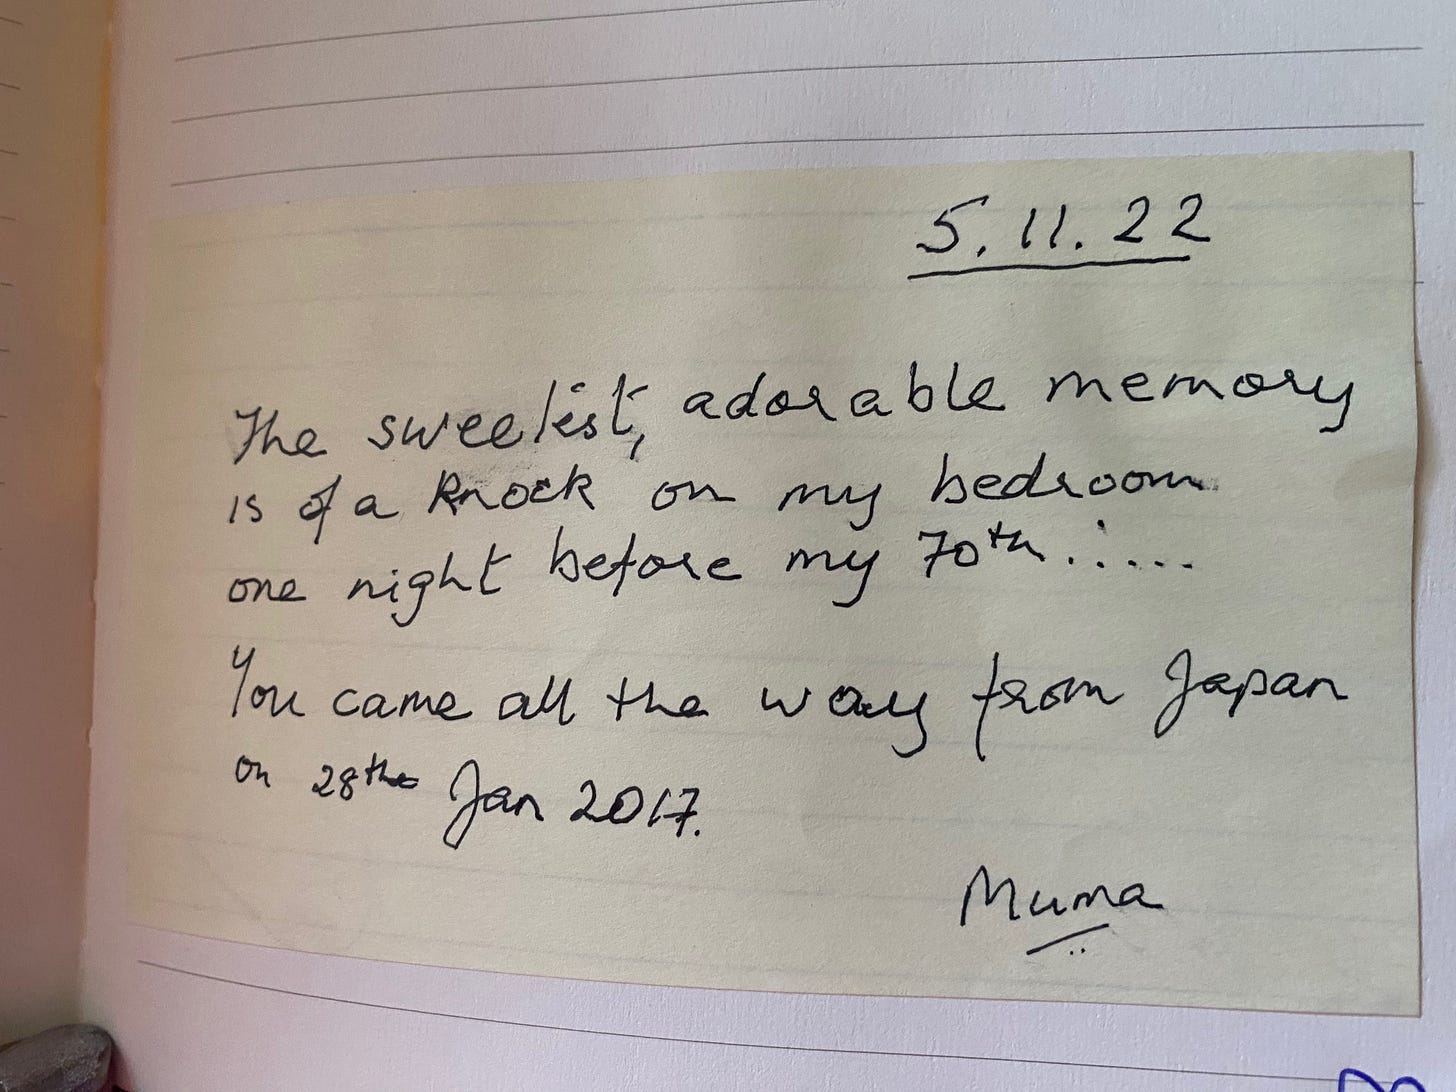 5.11.22
The sweetest, adorable memory
is of a knock on my bedroom
one night before my 70th......
You came all the way from Japan
on 28th Jan 2017.
Muma